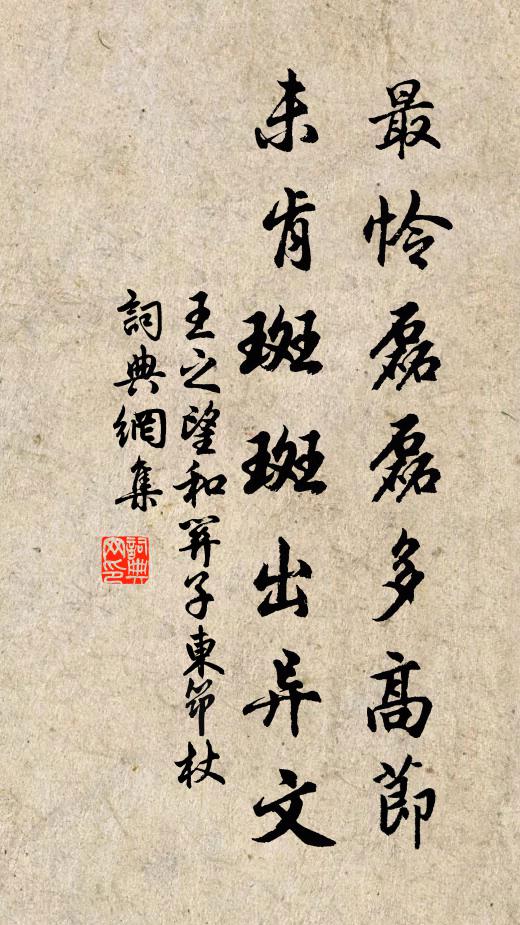 最怜磊磊多高節
未肯斑斑出异文
王之望和笄子東筇杖
詞典網集
詞典网印